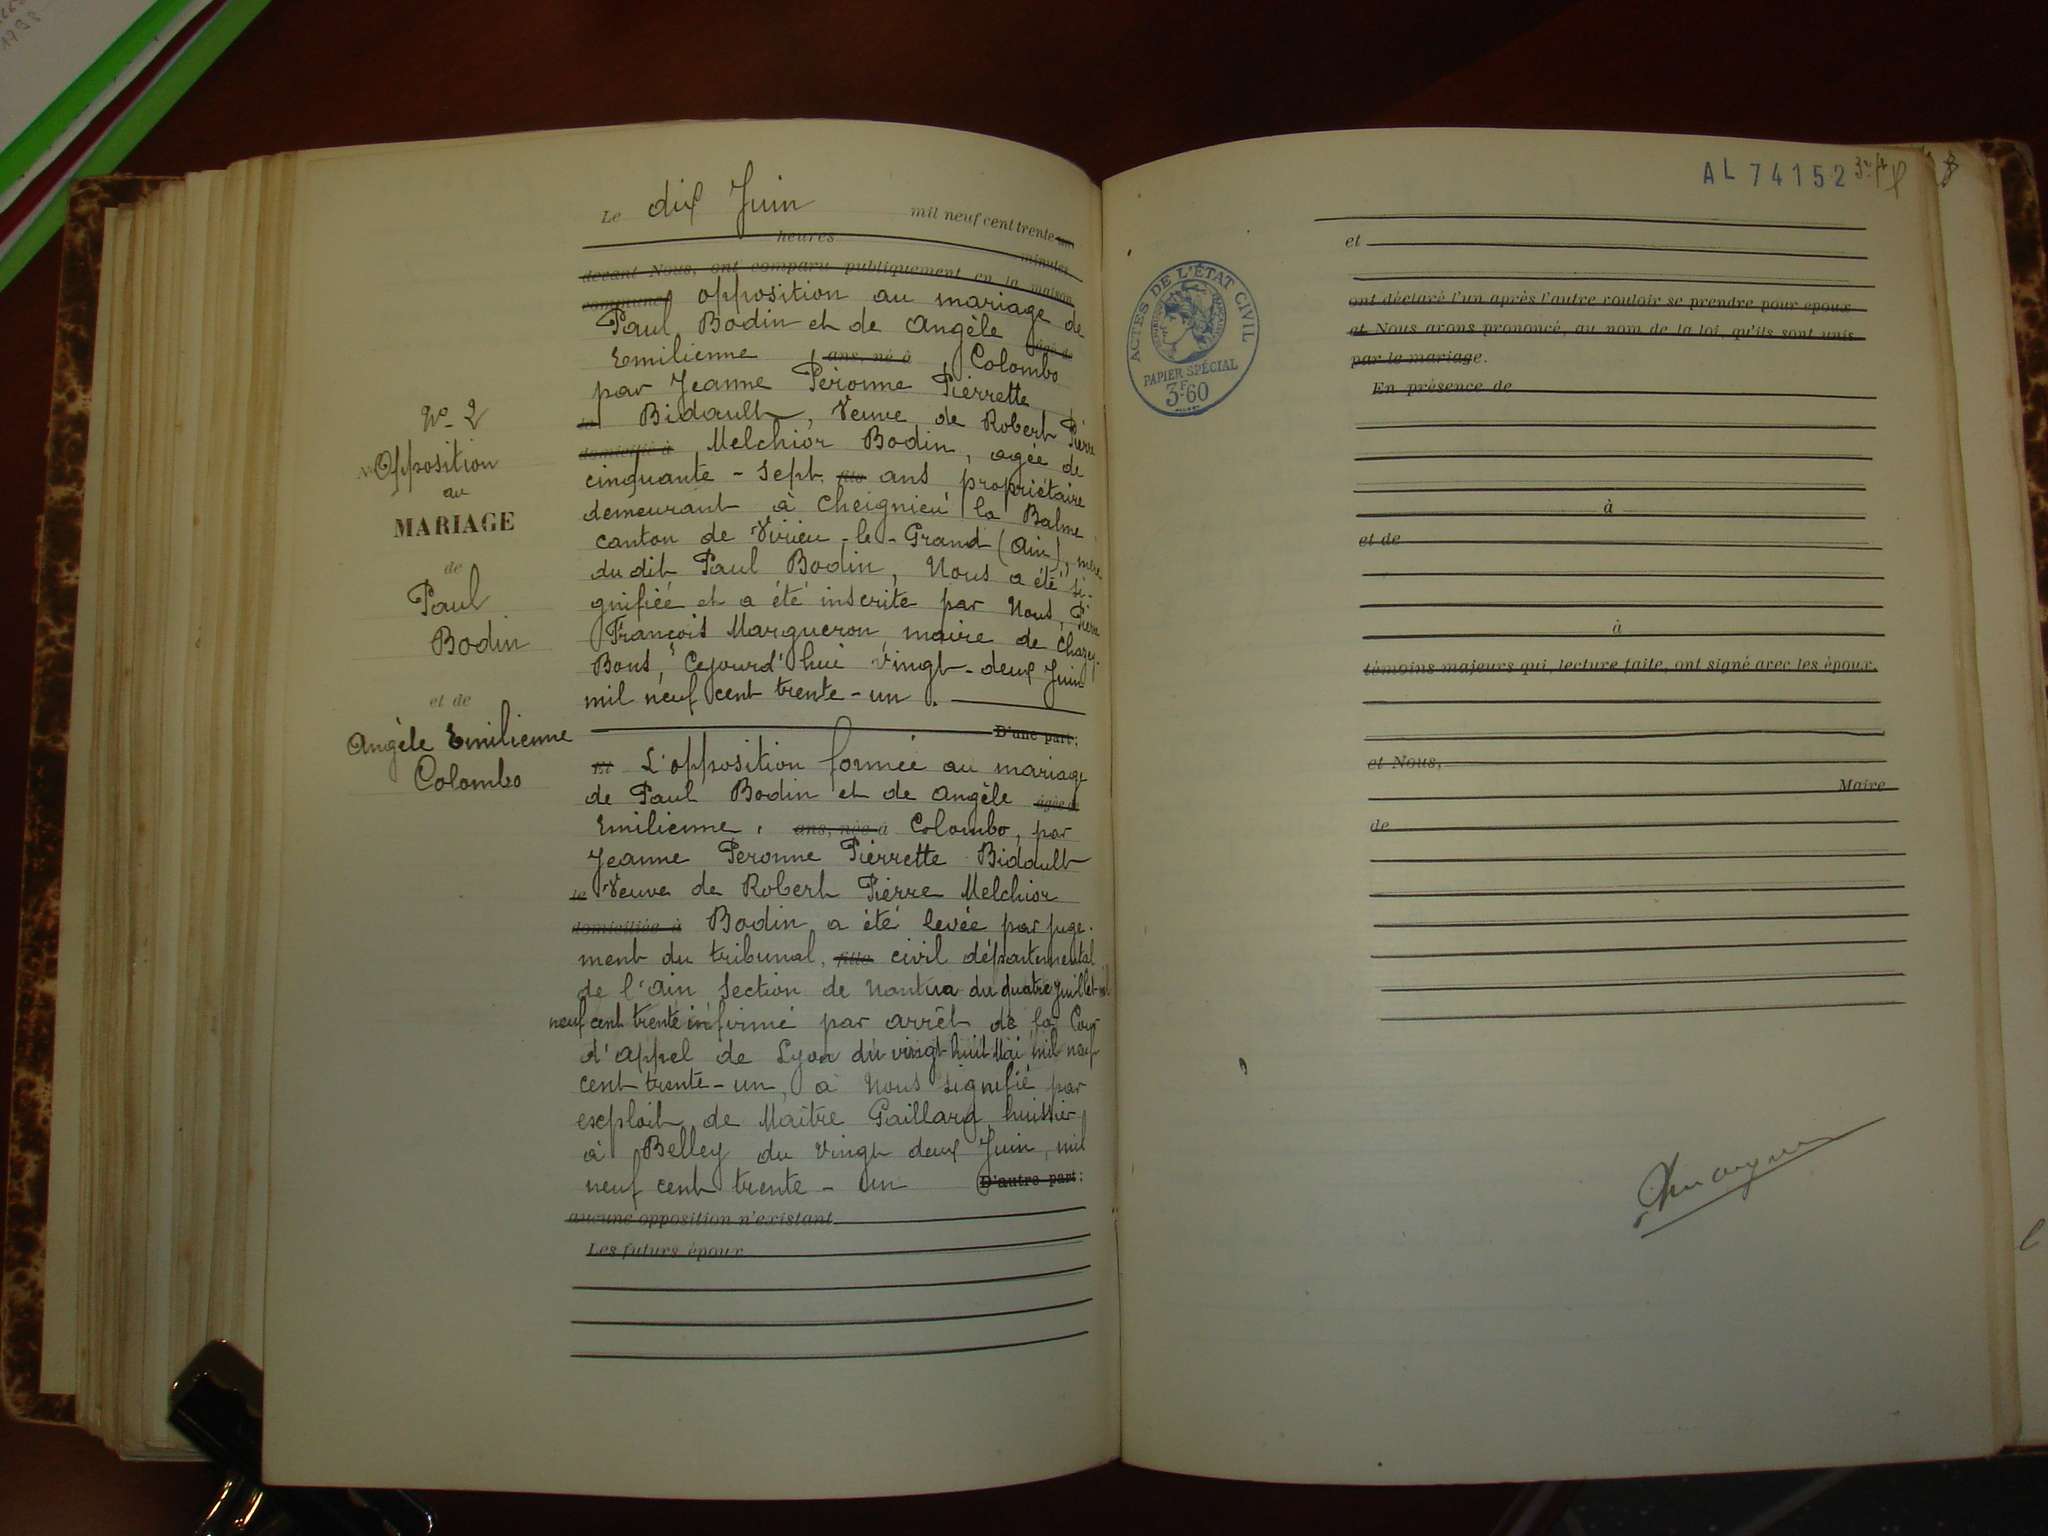 Nº 2
Opposition
au
MARIAGE
de
Paul
Bodin
et de
Angèle Emilienne
Colombo
Le dix Juin mil neuf cent trente un
heures minutes
devant Nous, ont comparu publiquement en la maison
commune opposition au mariage de
Paul Bodin et de Angèle âgé de
Emilienne ans, né à Colombo
par Jeanne Péronne Pierrette
le Bidault, Veuve de Robert Pierre
domicilié à Melchior Bodin, agée de
cinquante-sept fils ans propriétaire
demeurant à Cheignieu la Balme
canton de Virieu-le-Grand (Ain), mère
du dit Paul Bodin, Nous a été si-
gnifiée et a été inscrite par Nous, Pierre
François Margueron maire de Chazey
Bons, Cejourd'hui vingt-deux Juin
mil neuf cent trente-un.
D'une part;
Et L'opposition formée au mariage
de Paul Bodin et de Angèle âgée de
Emilienne, ans, née à Colombo, par
Jeanne Peronne Pierrette Bidault
le Veuve de Robert Pierre Melchior
domiciliée à Bodin a été levée par juge-
ment du tribunal, fille civil départemental
de l'ain Section de Nantua du quatre juillet mil
neuf cent trente infirmé par arrêt de la Cour
d'appel de Lyon du vingt huit Mai mil neuf
cent trente-un, a Nous signifié par
exploit de Maître Gaillard huissier
à Belley du vingt deux Juin, mil
neuf cent trente-un D'autre part;
aucune opposition n'existant
Les futurs époux
AL 74152
ACTES DE L'ÉTAT CIVIL
PAPIER SPÉCIAL
3F60
et
ont déclaré l'un après l'autre vouloir se prendre pour époux
et Nous avons prononcé, au nom de la loi, qu'ils sont unis
par le mariage.
En présence de
à
et de
à
témoins majeurs qui, lecture faite, ont signé avec les époux.
et Nous,
Maire
de